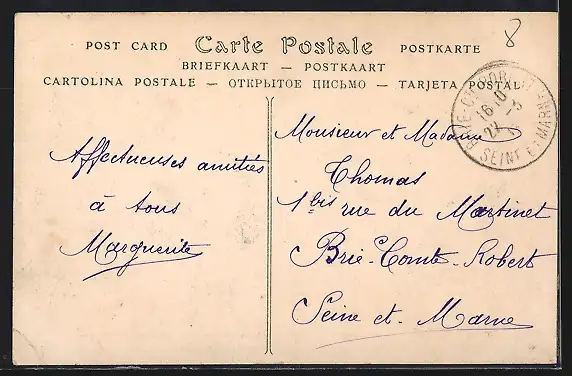 8
POST CARD Carte Postale POSTKARTE
BRIEFKAART — POSTKAART
CARTOLINA POSTALE — ОТКРЫТОЕ ПИСЬМО — TARJETA POSTAL
BRIE-CTE-ROBERT
16-10
SEINE ET MARNE
Affectueuses amitiés
à tous
Marguerite
Monsieur et Madame
Thomas
1bis rue du Martinet
Brie-Comte-Robert
Seine et-Marne